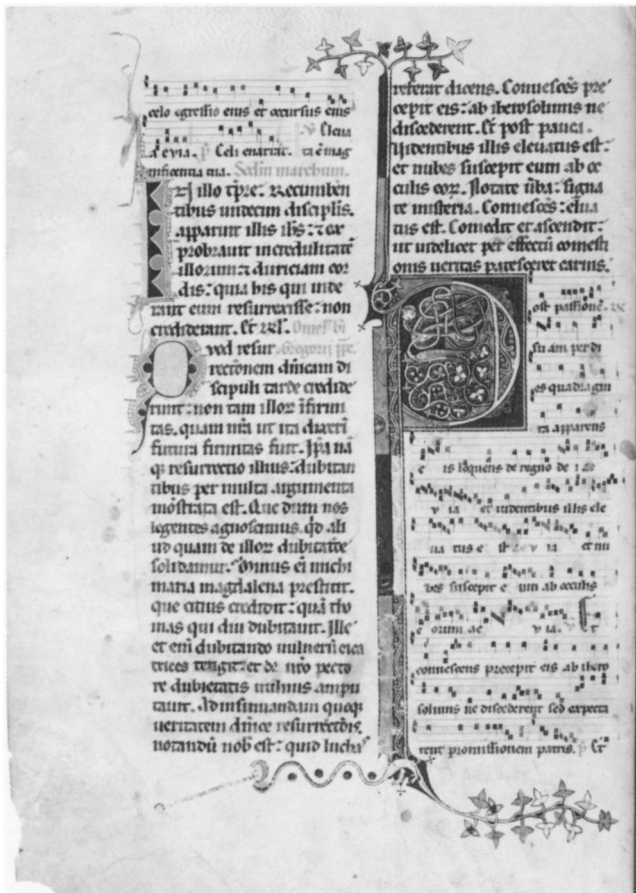 celo egressio eius et occursus eius
℣ Eleua
a e via. ℣ Celi enarrāt. ta ē mag
nificentia tua. Scdm marchum.
IN illo tp̄re: Recumben
tibus undecim discip̄lis.
apparuit illis ih̄s: ⁊ ex
probrauit incredulitatē
illorum ⁊ duriciam cor
dis: quia bis qui uide
rant eum resurrexisse: non
crediderant. Et rel̄. Omel̄ bī
Qvod resur Gregorij pp̄e.
rectionem dn̄icam di
scipuli tarde credide
runt: non tam illoꝝ īfirmi
tas. quam nr̄a ut ita dixerī
futura firmitas fuit. Ip̄a nā
qꝫ resurrectio illius: dubitan
tibus per multa argumenta
mōstrata est. Que dum nos
legentes agnoscimus. qd̄ ali
ud quam de illoꝝ dubitatōe
solidamur. Minus eī michi
maria magdalena prestitit.
que citius credidit: quā tho
mas qui diu dubitauit. Ille
et enī dubitando uulnerū cica
trices tetigit: et de nr̄o pecto
re dubietatis uulnus ampu
tauit. Ad insinuandam quoqꝫ
ueritatem dn̄ice resurrectōis
notandū nob̄ est: quid lucha
referat dicens. Conuescēs pre
cepit eis: ab iherosolimis ne
discederent. Et post pauca.
Uidentibus illis eleuatus est:
et nubes suscepit eum ab oc
culis eoꝝ. Notate ūba: signa
te misteria. Conuescēs: eleua
tus est. Comedit et ascendit:
ut uidelicet per effectū comesti
onis ueritas patesceret carnis.
Post passionē.
su am per di
es quadragin
ta apparens
e is loquens de regno de i
v ia et uidentibus illis ele
ua tus e st v ia et nu
bes suscepit e um ab occulis
e orum ae v ia. Et
conuescens precepit eis ab ihero
solimis ne discederent sed expecta
rent promissionem patris. ℣ Et